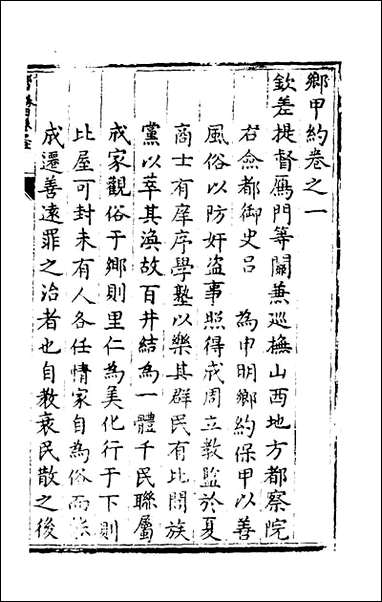 鄉甲約卷之一
欽差提督鴈門等關兼巡撫山西地方都察院
右僉都御史呂　為申明鄉約保甲以善
風俗以防奸盜事照得成周立教監於夏
商士有庠序學塾以樂其群民有比閭族
黨以萃其渙故百井結為一體千民聯屬
成家觀俗于鄉則里仁為美化行于下則
比屋可封未有人各任情家自為俗而
成遷善遠罪之治者也自教衰民散之後